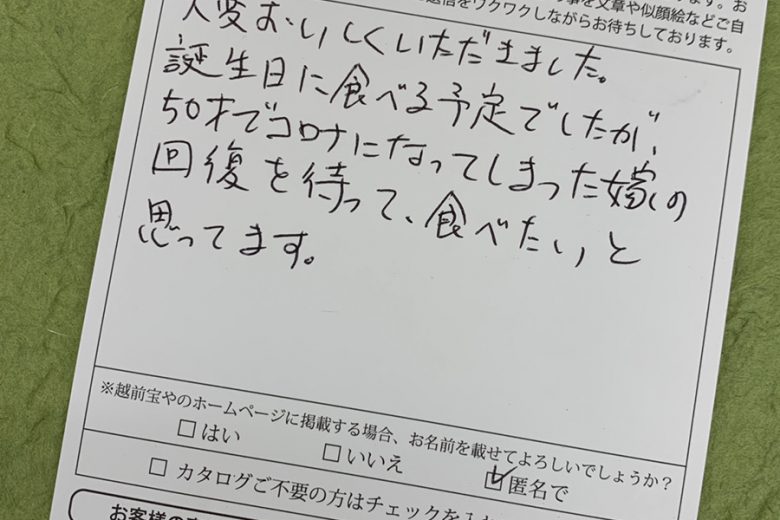 事を文章や似顔絵などご自
返信をワクワクしながらお待ちしております。
大変おいしくいただきました。
誕生日に食べる予定でしたが、
50才でコロナになってしまった嫁の
回復を待って、食べたいと
思ってます。
※越前宝やのホームページに掲載する場合、お名前を載せてよろしいでしょうか?
□はい □いいえ ☑匿名で
□ カタログご不要の方はチェックを入
お客様の